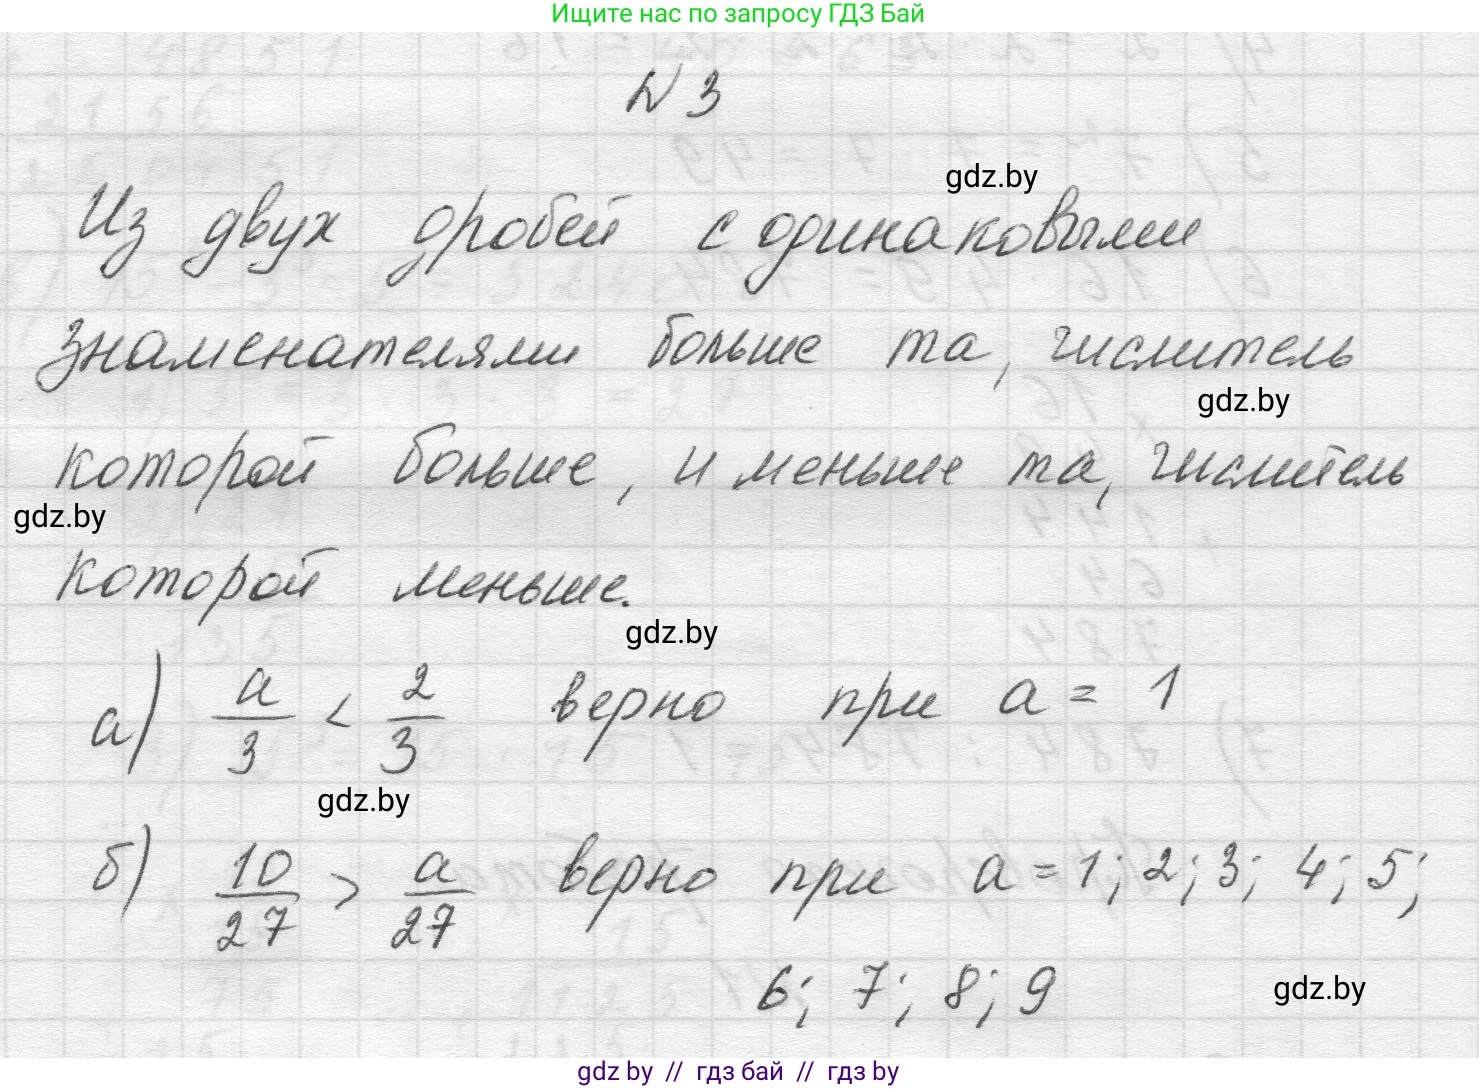 Ищите нас по запросу ГДЗ Бай
N 3
gdz.by
Из двух дробей с одинаковыми
знаменателями больше та, числитель
gdz.by
которой больше, и меньше та, числитель
gdz.by
которой меньше.
gdz.by
а) a/3 < 2/3 верно при a = 1
gdz.by
б) 10/27 > a/27 верно при a = 1; 2; 3; 4; 5;
6; 7; 8; 9
gdz.by
gdz by // гдз бай // гдз by